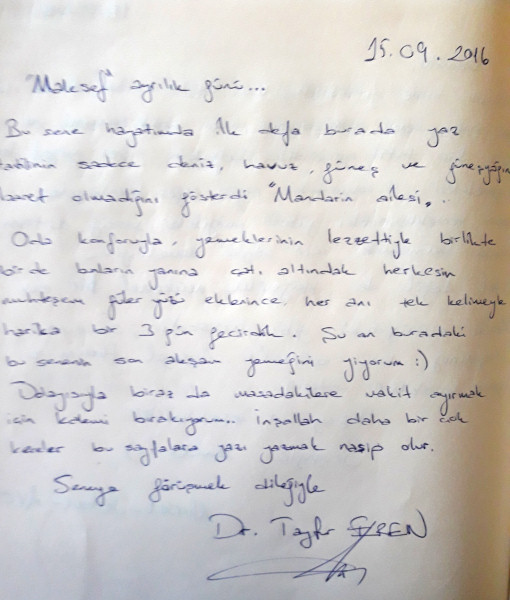 15.09.2016
"Malesef" ayrılık günü...
Bu sene hayatımda ilk defa burada yaz
tatilinin sadece deniz, havuz, güneş ve güneşyağın
ibaret olmadığını gösterdi "Mandarin ailesi"..
Oda konforuyla, yemeklerinin lezzettiyle birlikte
bir de bunların yanına çatı altındaki herkesin
muhteşem güler yüzü eklenince, her anı tek kelimeyle
harika bir 3 gün geçirdik. Şu an buradaki
bu senenin son akşam yemeğini yiyorum :)
Dolayısıyla biraz da masadakilere vakit ayırmak
için kalemi bırakıyorum.. İnşallah daha bir çok
kereler bu sayfalara yazı yazmak nasip olur.
Seneye görüşmek dileğiyle
Dr. Tayfur